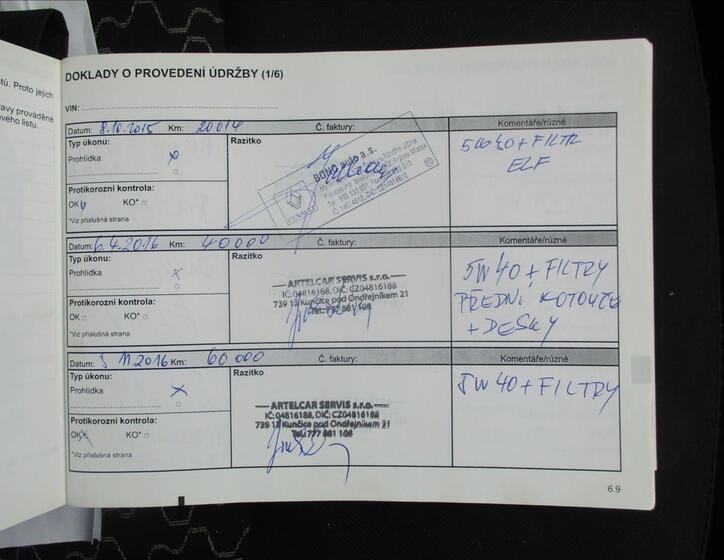 stů. Proto jejich
avy prováděné
ového listu.
DOKLADY O PROVEDENÍ ÚDRŽBY (1/6)
VIN:
Datum: 8.10.2015 Km: 20014 Č. faktury: Komentáře/různé
Typ úkonu: Razítko
Prohlídka x
Protikorozní kontrola:
OK KO*
*Viz příslušná strana
BONO auto a.s.
RENAULT
5W40 + FILTR
ELF
Datum: 6.4.2016 Km: 40000 Č. faktury: Komentáře/různé
Typ úkonu: Razítko
Prohlídka x
Protikorozní kontrola:
OK KO*
*Viz příslušná strana
ARTELCAR SERVIS s.r.o.
IČ: 04816188, DIČ: CZ04816188
739 13 Kunčice pod Ondřejníkem 21
Tel.: 777 881 108
5W40 + FILTRY
PŘEDNÍ KOTOUČE
+ DESKY
Datum: 11.2016 Km: 60000 Č. faktury: Komentáře/různé
Typ úkonu: Razítko
Prohlídka x
Protikorozní kontrola:
OK x KO*
*Viz příslušná strana
ARTELCAR SERVIS s.r.o.
IČ: 04816188, DIČ: CZ04816188
739 13 Kunčice pod Ondřejníkem 21
Tel.: 777 881 108
5W40 + FILTRY
6.9